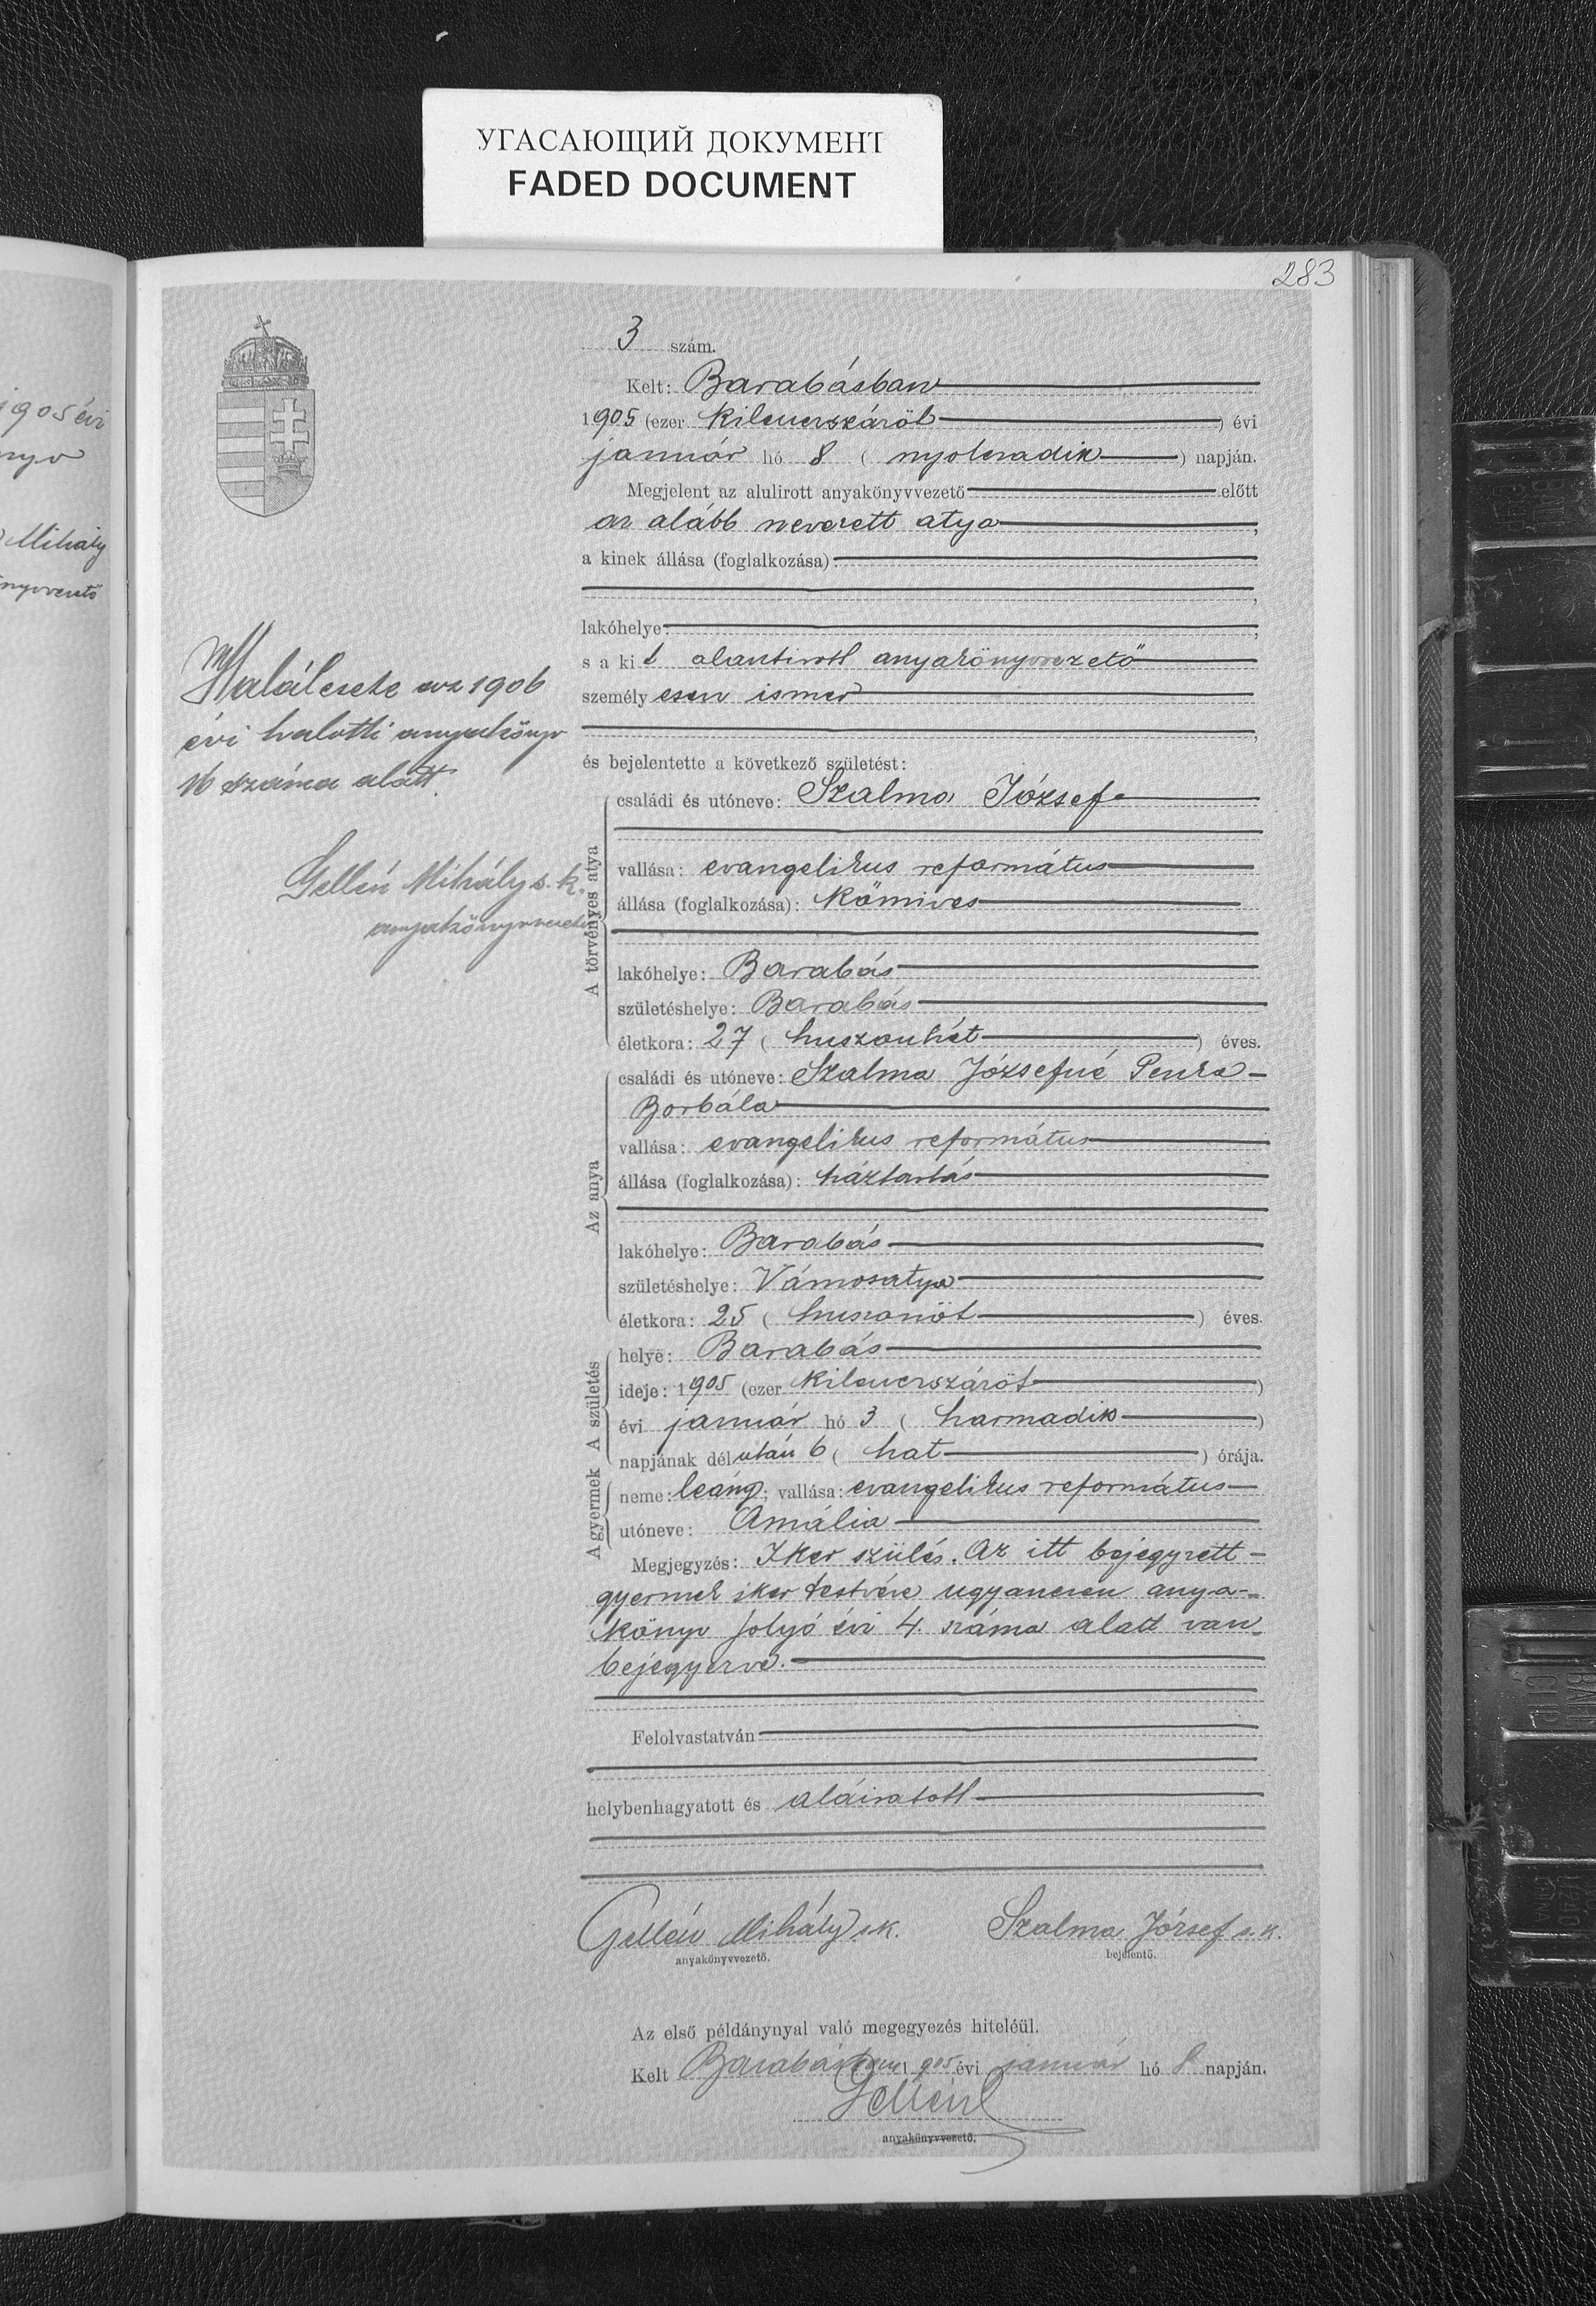 УГАСАЮЩИЙ ДОКУМЕНТ
FADED DOCUMENT
283
1905 évi
Mihály
3 szám.
Kelt: Barabásban
1905 (ezer kilenczszáröt) évi
január hó 8 (nyolczadik) napján.
Megjelent az alulirott anyakönyvvezető előtt
az alább nevezett atya,
a kinek állása (foglalkozása):
lakóhelye:
s a kit alantirott anyakönyvvezető
személyesen ismer
és bejelentette a következő születést:
Halálesete az 1906
évi halotti anyakönyv
16 száma alatt.
Gellén Mihály s. k.
anyakönyvvezető
A törvényes atya
családi és utóneve: Szalma József
vallása: evangelikus református
állása (foglalkozása): kőmives
lakóhelye: Barabás
születéshelye: Barabás
életkora: 27 (huszonhét) éves.
Az anya
családi és utóneve: Szalma Józsefné
Borbála
vallása: evangelikus református
állása (foglalkozása): háztartás
lakóhelye: Barabás
születéshelye: Vámosatya
életkora: 25 (huszonöt) éves.
A születés
helye: Barabás
ideje: 1905 (ezer kilenczszáröt)
évi január hó 3 (harmadik)
napjának délután 6 (hat) órája.
A gyermek
neme: leány; vallása: evangelikus református
utóneve: Amália
Megjegyzés: Iker szülés. Az itt bejegyzett
gyermek iker testvére ugyanezen anya-
könyv folyó évi 4. száma alatt van
bejegyezve.
Felolvastatván
helybenhagyatott és aláiratott
Gellén Mihály s.k. Szalma József s.k.
anyakönyvvezető. bejelentő.
Az első példánynyal való megegyezés hiteléül.
Kelt Barabásban 1905 évi január hó 8 napján.
Gellén
anyakönyvvezető.